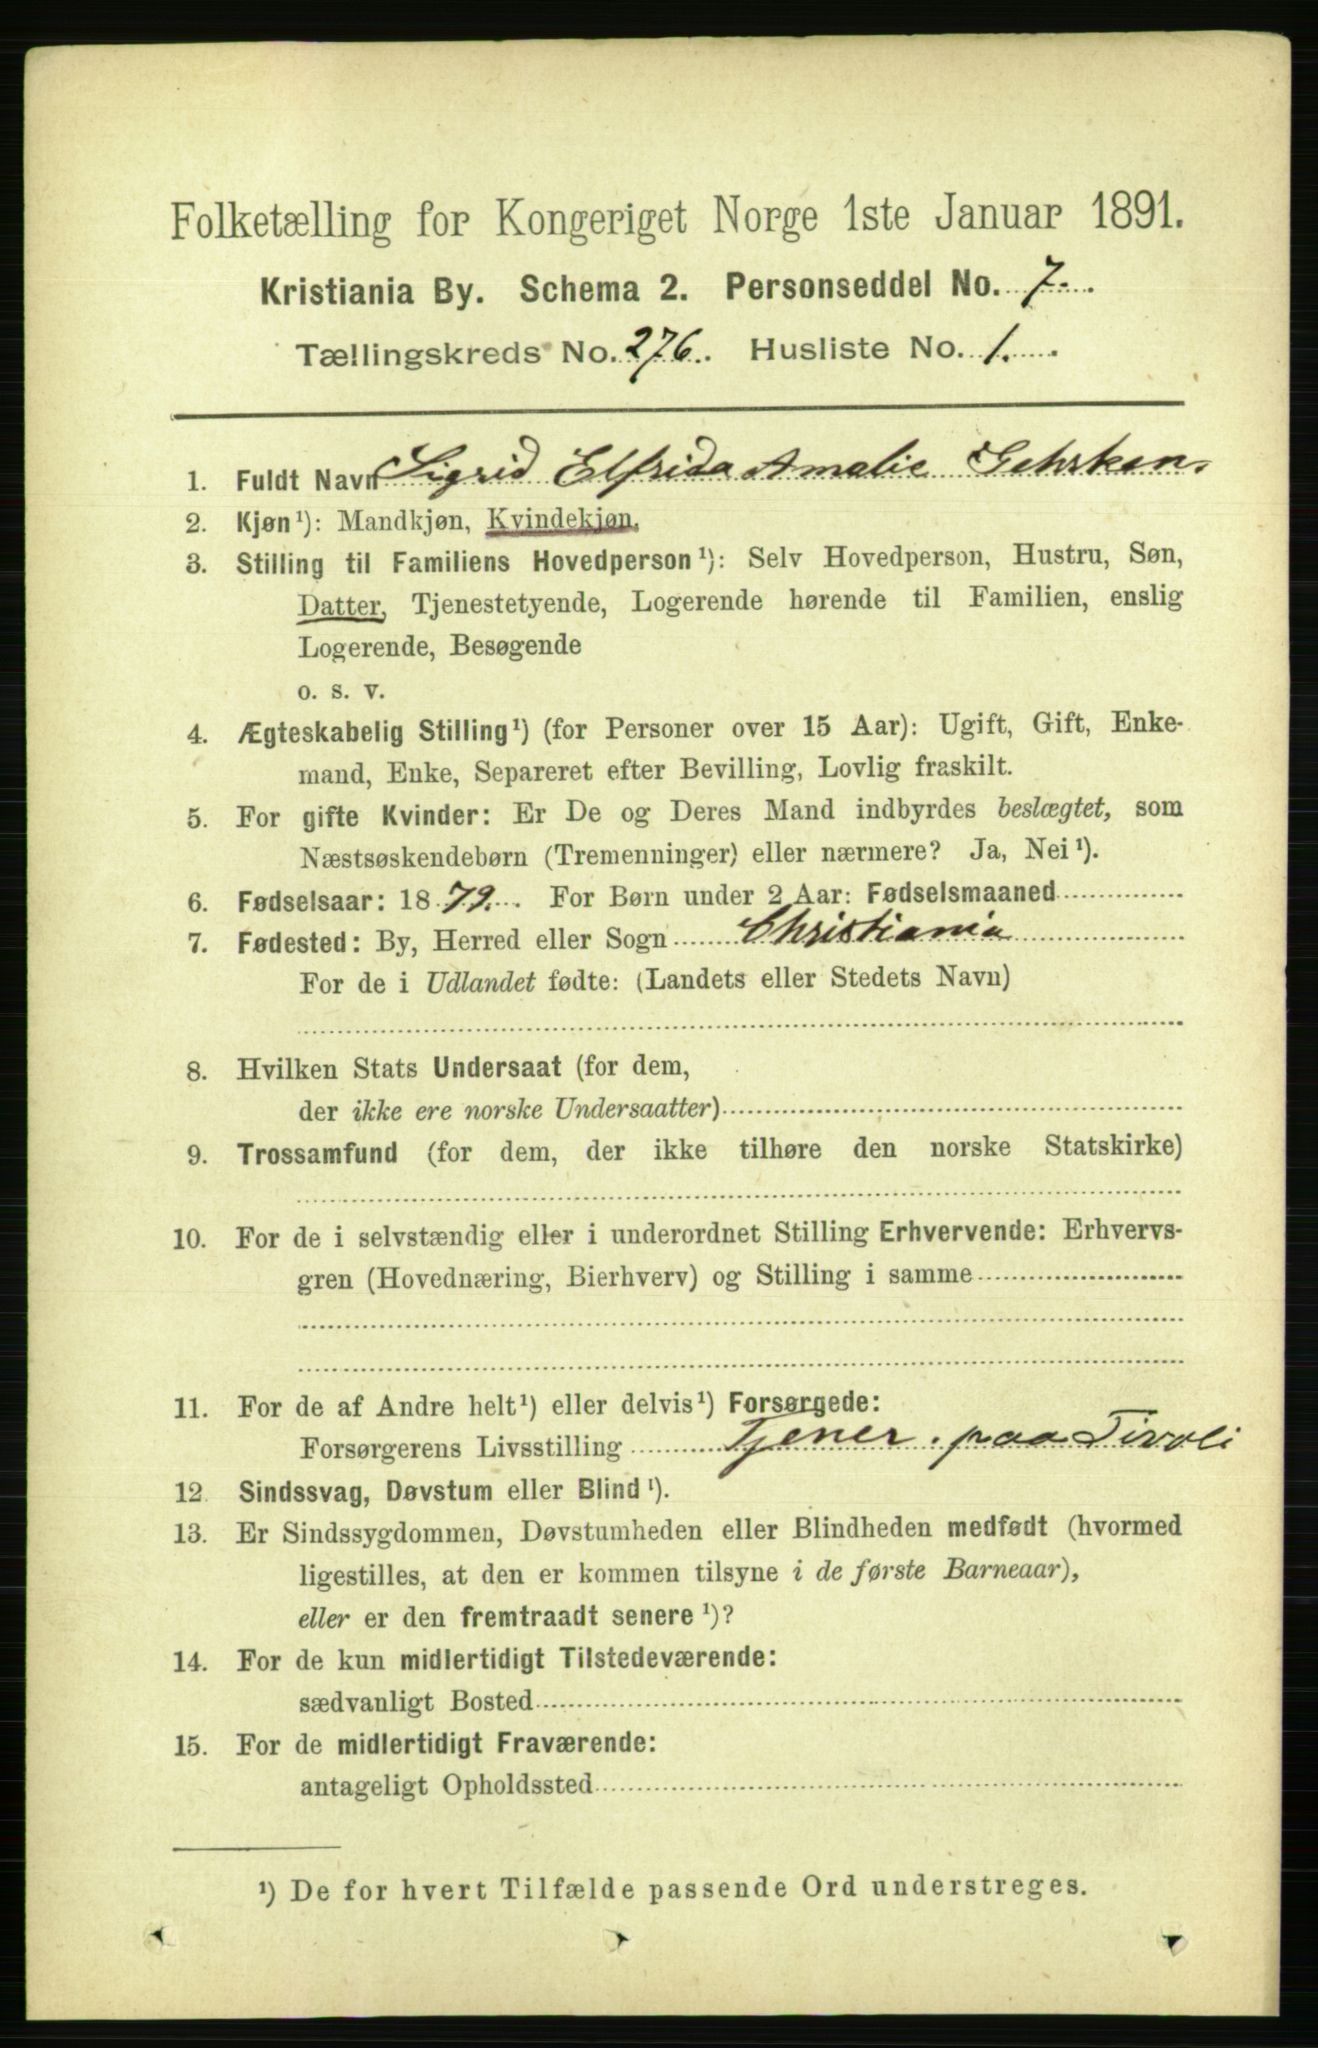 Folketælling for Kongeriget Norge 1ste Januar 1891.
Kristiania By. Schema 2. Personseddel No. 7.
Tællingskreds No. 276. Husliste No. 1.
1. Fuldt Navn Sigrid Elfrida Amalie Gehrken.
2. Kjøn¹): Mandkjøn, Kvindekjøn.
3. Stilling til Familiens Hovedperson¹): Selv Hovedperson, Hustru, Søn,
Datter, Tjenestetyende, Logerende hørende til Familien, enslig
Logerende, Besøgende
o. s. v.
4. Ægteskabelig Stilling¹) (for Personer over 15 Aar): Ugift, Gift, Enke-
mand, Enke, Separeret efter Bevilling, Lovlig fraskilt.
5. For gifte Kvinder: Er De og Deres Mand indbyrdes beslægtet, som
Næstsøskendebørn (Tremenninger) eller nærmere? Ja, Nei¹).
6. Fødselsaar: 1879. For Børn under 2 Aar: Fødselsmaaned
7. Fødested: By, Herred eller Sogn Christiania
For de i Udlandet fødte: (Landets eller Stedets Navn)
8. Hvilken Stats Undersaat (for dem,
der ikke ere norske Undersaatter)
9. Trossamfund (for dem, der ikke tilhøre den norske Statskirke)
10. For de i selvstændig eller i underordnet Stilling Erhvervende: Erhvervs-
gren (Hovednæring, Bierhverv) og Stilling i samme
11. For de af Andre helt¹) eller delvis¹) Forsørgede:
Forsørgerens Livsstilling Tjener. paa Tivoli
12. Sindssvag, Døvstum eller Blind¹).
13. Er Sindssygdommen, Døvstumheden eller Blindheden medfødt (hvormed
ligestilles, at den er kommen tilsyne i de første Barneaar),
eller er den fremtraadt senere¹)?
14. For de kun midlertidigt Tilstedeværende:
sædvanligt Bosted
15. For de midlertidigt Fraværende:
antageligt Opholdssted
¹) De for hvert Tilfælde passende Ord understreges.